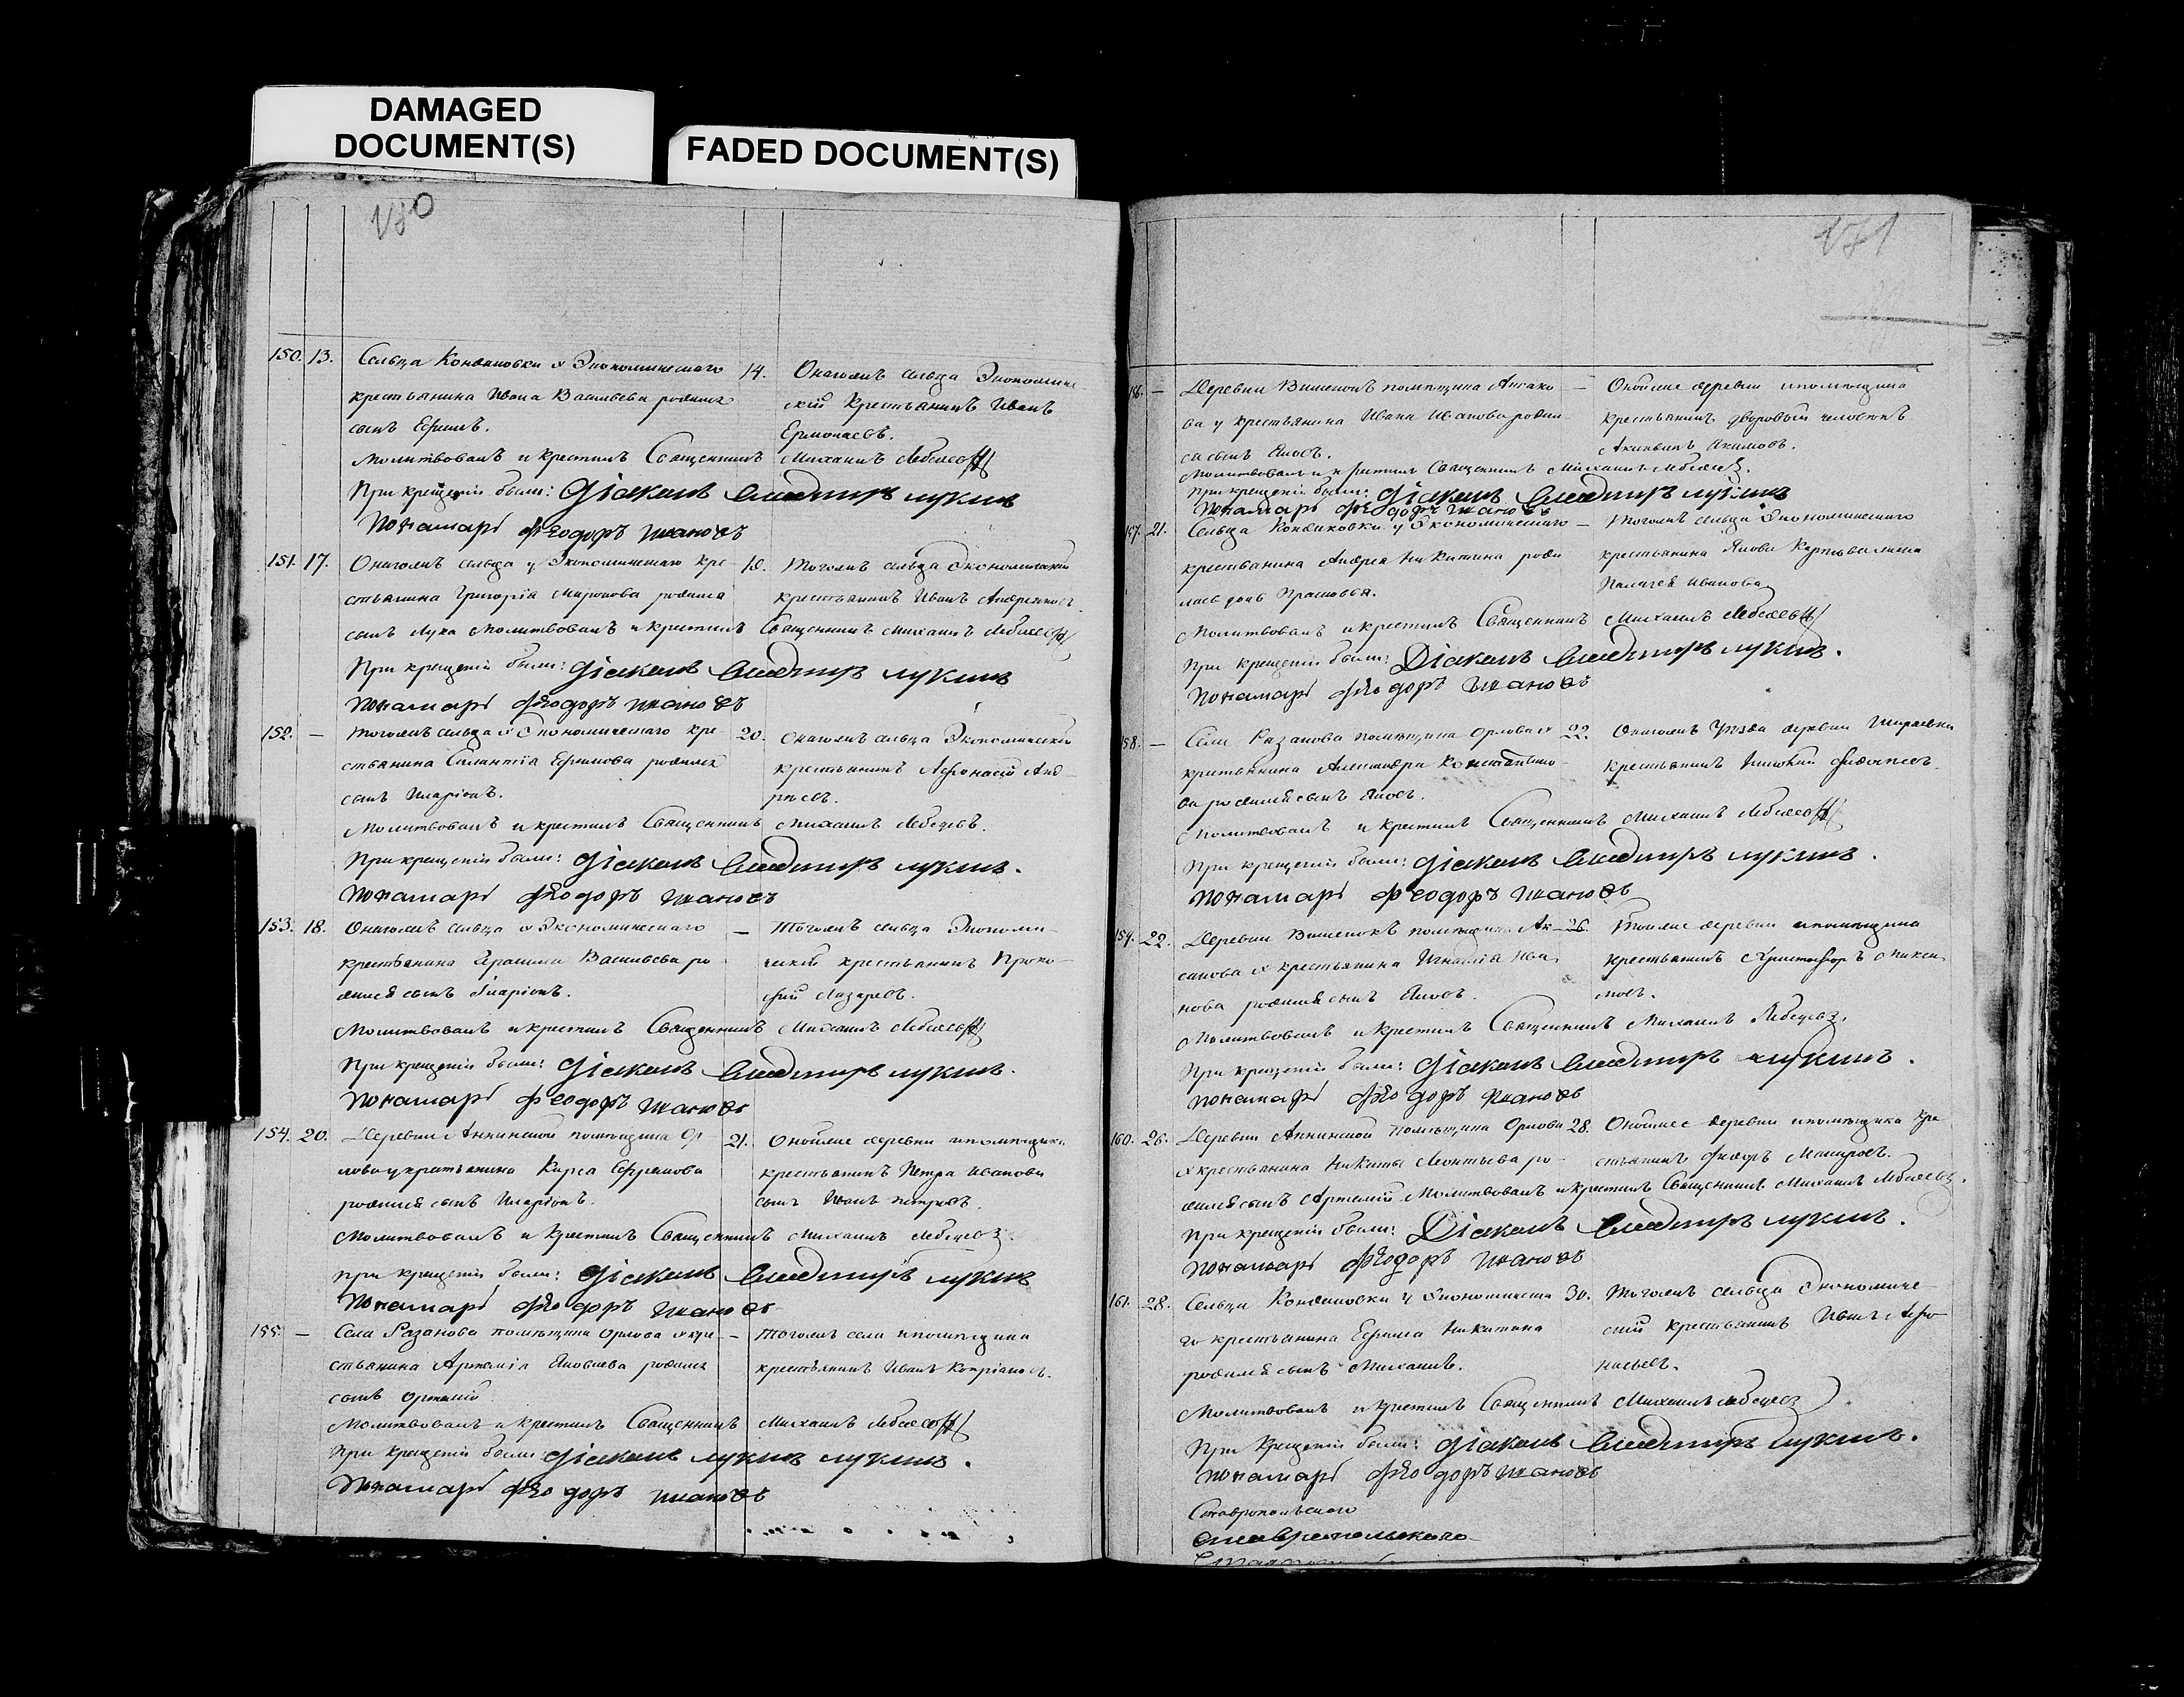 DAMAGED
DOCUMENT(S)
FADED DOCUMENT(S)
150. 13. Сельца Кондаковки у Экономическаго
крестьянина Ивана Васильева родился
сынъ Ефимъ.
14. Онагожъ сельца Экономиче
скій крестьянинъ Иванъ
Ермолаевъ.
Молитвовалъ и крестилъ Священникъ Михаилъ Лебедевъ
При крещеніи были: Діаконъ Владимиръ Лукинъ
Понамарь Феодоръ
151. 17. Онагожъ сельца у Экономическаго кре-
стьянина Григорія Миронова родился
19. Тогожъ сельца Экономической
крестьянинъ Иванъ
сынъ Лука Молитвовалъ и крестилъ Священникъ Михаилъ Лебедевъ
При крещеніи были: Діаконъ Владимиръ Лукинъ
Понамарь Феодоръ
152. – Тогожъ сельца у Экономическаго кре
стьянина Силантія Ефимова родился
сынъ Иларіонъ.
20. Онагожъ сельца Экономической
крестьянинъ Афонасій Анд-
реевъ.
Молитвовалъ и крестилъ Священникъ Михаилъ Лебедевъ.
При крещеніи были: Діаконъ Владимиръ Лукинъ.
Понамарь Феодоръ
153. 18. Онагожъ сельца у Экономическаго
крестьянина Герасима Васильева ро-
дился сынъ Іларіонъ.
– Тогожъ сельца Экономи-
ческій крестьянинъ Проко-
фій Лазаревъ.
Молитвовалъ и крестилъ Священникъ Михаилъ Лебедевъ
При крещеніи были: Діаконъ Владимиръ Лукинъ.
Понамарь Феодоръ
154. 20. Деревни Аннинской помѣщика Ор
лова у крестьянина Карпа
родился сынъ Иларіонъ.
21. Онойже деревни и помѣщика
крестьянинъ Петра Иванова
сынъ Иванъ Петровъ.
Молитвовалъ и крестилъ Священникъ Михаилъ Лебедевъ.
При крещеніи были: Діаконъ Владимиръ Лукинъ
Понамарь Феодоръ
155. – Села Разанова помѣщика Орлова у кре
стьянина Артемія Яковлева родился
сынъ Артемій
– Тогожъ села и помѣщика
крестьянинъ Иванъ
Молитвовалъ и крестилъ Священникъ Михаилъ Лебедевъ
При крещеніи были: Діаконъ Лукинъ Лукинъ.
Понамарь Феодоръ
156. – Деревни Вишенокъ помѣщика Аксако
ва у крестьянина Ивана Иванова родил-
ся сынъ Яковъ.
– Онойже деревни и помѣщика
крестьянинъ дворовый человекъ
Акимовъ.
Молитвовалъ и крестилъ Священникъ Михаилъ Лебедевъ.
При крещеніи были: Діаконъ Владимиръ Лукинъ
Понамарь Феодоръ
157. 21. Сельца Кондаковки у Экономическаго
крестьянина Андрея Никитина роди
лась дочь Прасковья.
– Тогожъ сельца Экономическаго
крестьянина Якова
Пелагея Иванова
Молитвовалъ и крестилъ Священникъ Михаилъ Лебедевъ
При крещеніи были: Діаконъ Владимиръ Лукинъ.
Понамарь Феодоръ
158. – Села Разанова помѣщика Орлова у
крестьянина Александра Константино-
ва родился сынъ Яковъ.
22. Онагожъ Уѣзда деревни
крестьянинъ
Молитвовалъ и крестилъ Священникъ Михаилъ Лебедевъ
При крещеніи были: Діаконъ Владимиръ Лукинъ.
Понамарь Феодоръ
159. 22. Деревни Вишенокъ помѣщика Ак-
сакова у крестьянина Игнатія Ива
нова родился сынъ Яковъ.
26. Тойже деревни и помѣщика
крестьянинъ Христофоръ
Молитвовалъ и крестилъ Священникъ Михаилъ Лебедевъ.
При крещеніи были: Діаконъ Владимиръ Лукинъ.
Понамарь Феодоръ
160. 26. Деревни Аннинской помѣщика Орлова
у крестьянина Никиты Леонтьева ро-
28. Онойже деревни и помѣщика кре
стьянинъ
дился сынъ Артемій Молитвовалъ и крестилъ Священникъ Михаилъ Лебедевъ.
При крещеніи были: Діаконъ Владимиръ Лукинъ.
Понамарь Феодоръ
161. 28. Сельца Кондаковки у Экономическа
го крестьянина Ефима Никитина
родился сынъ Михаилъ.
30. Тогожъ сельца Экономиче-
скій крестьянинъ Иванъ Афо
насьевъ.
Молитвовалъ и крестилъ Священникъ Михаилъ Лебедевъ
При крещеніи были: Діаконъ Владимиръ Лукинъ.
Понамарь Феодоръ
Ставропольскаго
Ставропольскаго